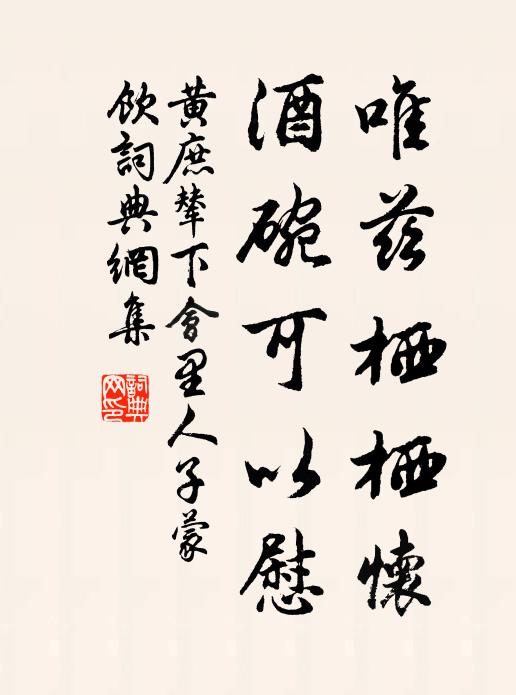 唯茲栖栖懷
酒碗可以慰
黃庶輦下會里人子蒙
飲詞典網集
詞典
网印